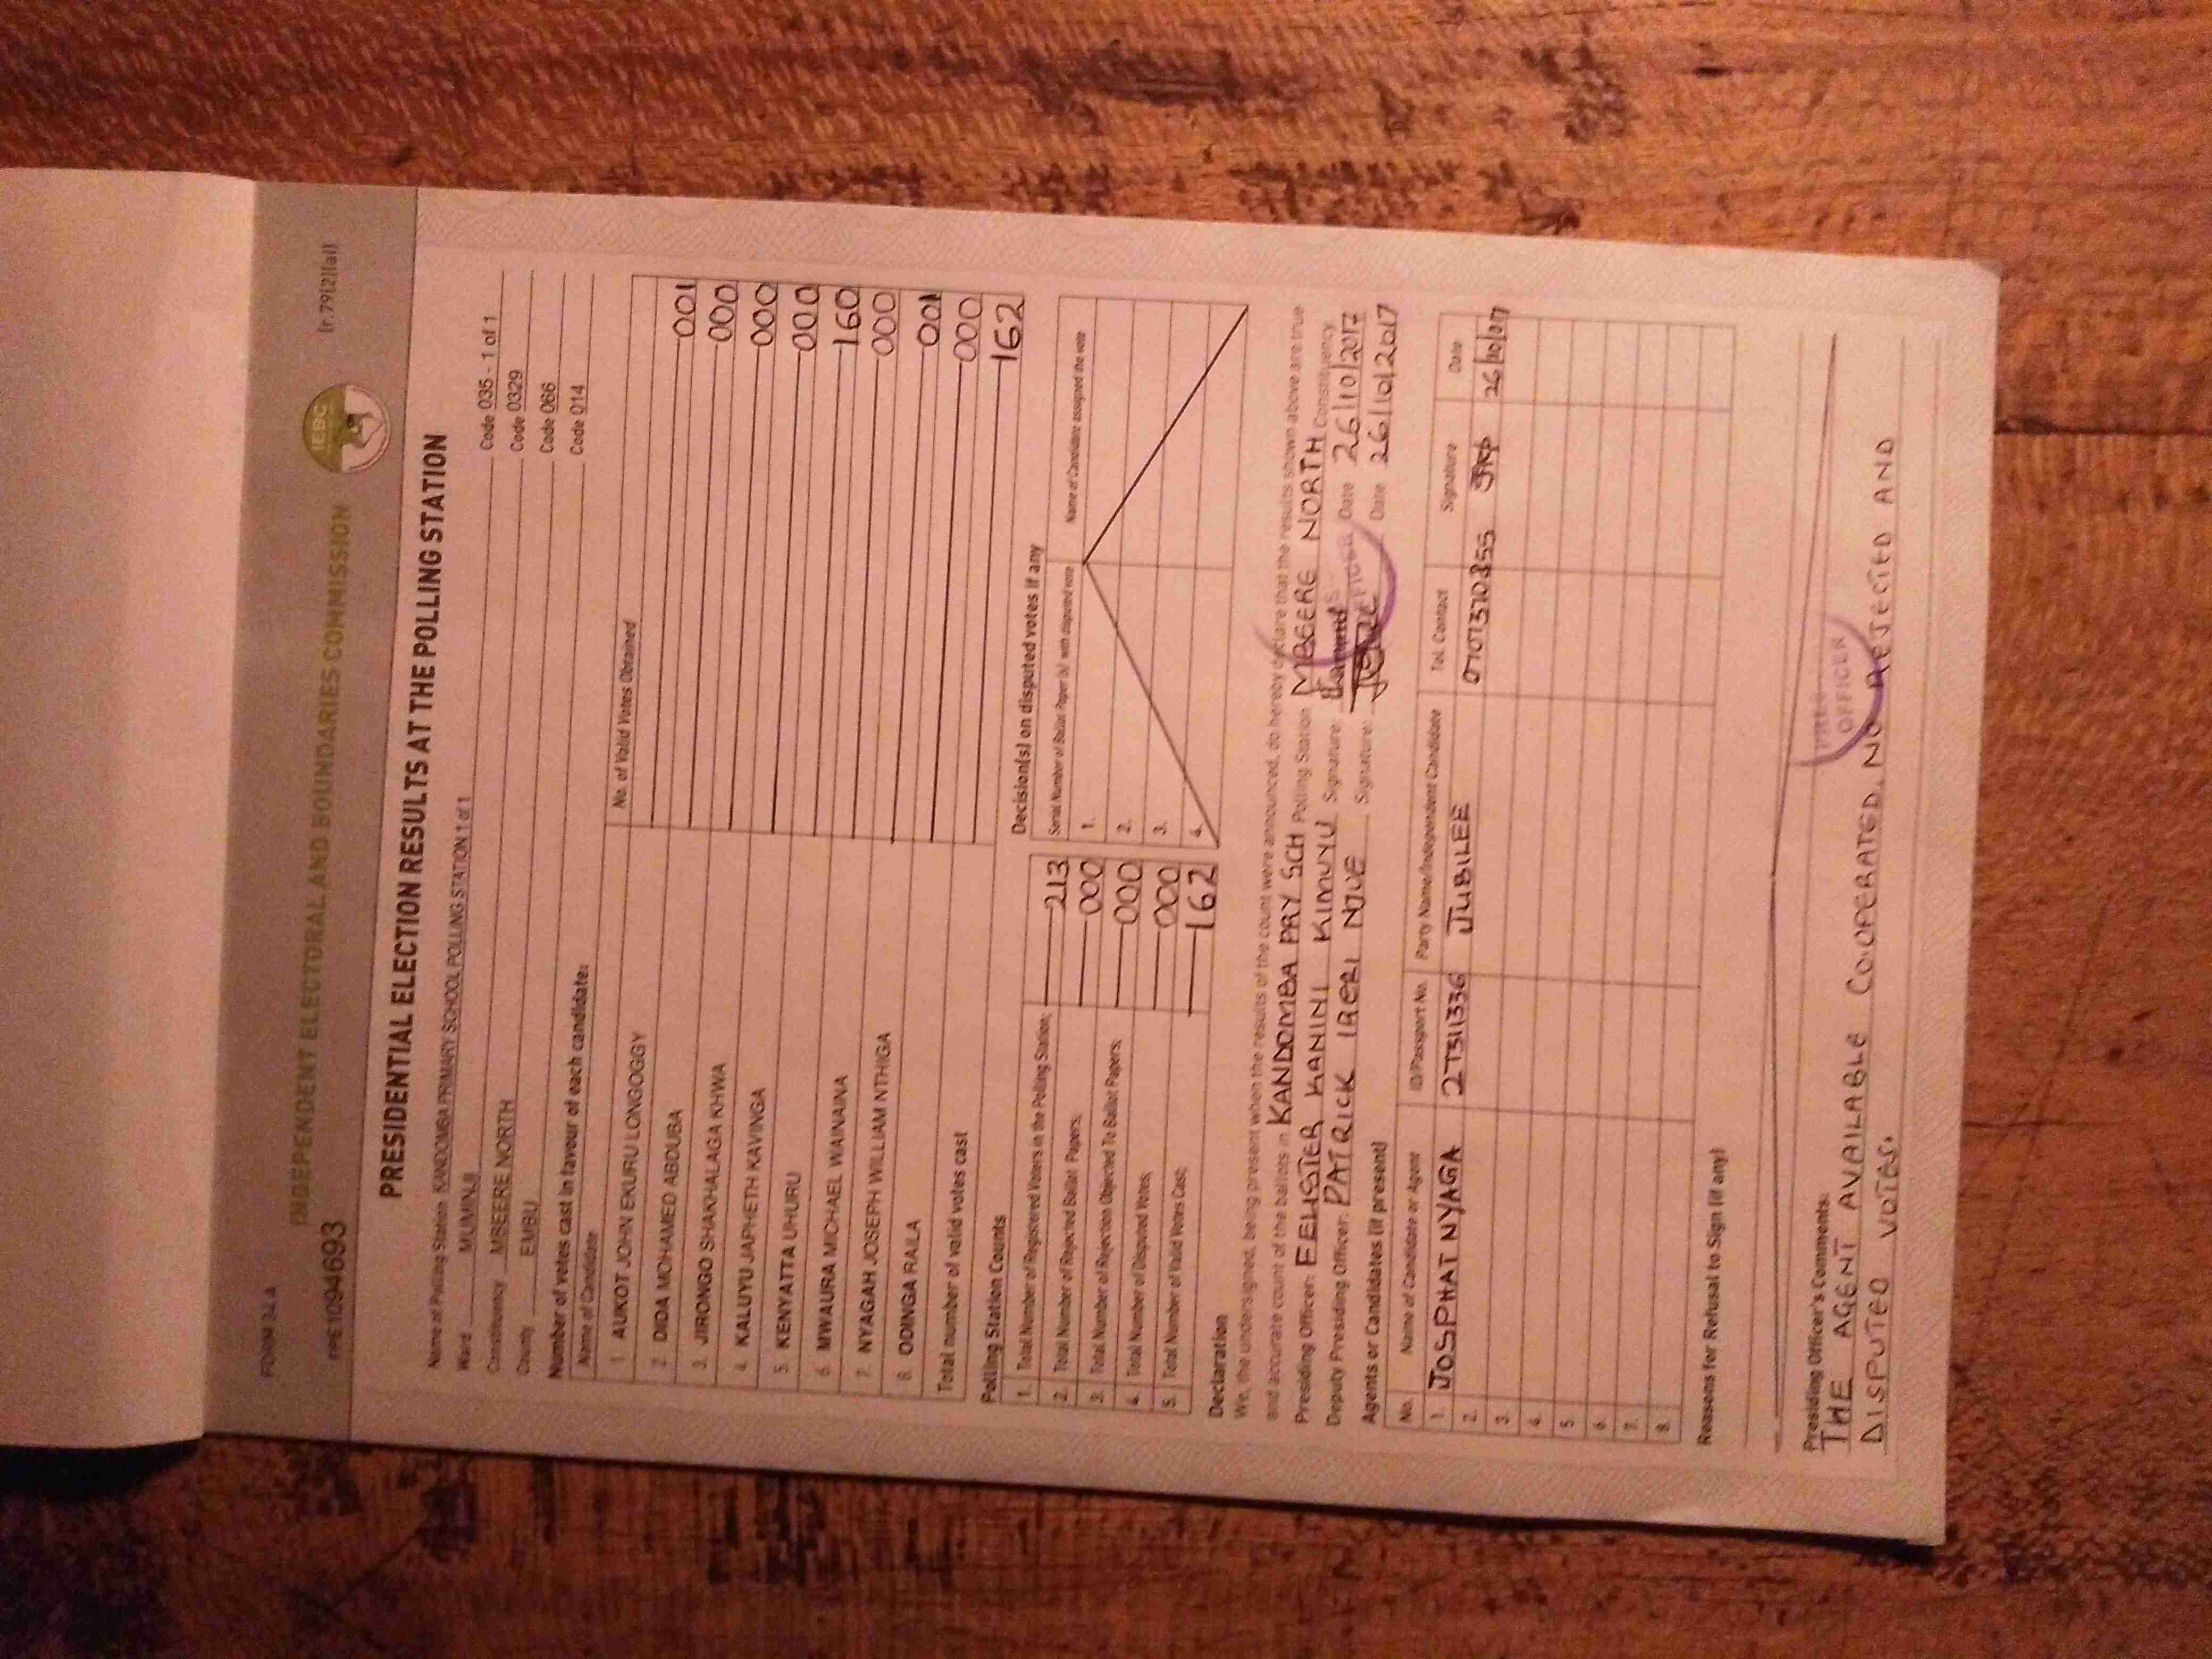 FORM 34 A
(r.79(2)(a))
INDEPENDENT ELECTORAL AND BOUNDARIES COMMISSION
IEBC
PRE1094693
PRESIDENTIAL ELECTION RESULTS AT THE POLLING STATION
Name of Polling Station KANDOMBA PRIMARY SCHOOL POLLING STATION 1 of 1 Code 035 - 1 of 1
Ward MUMINJI Code 0329
Constituency MBEERE NORTH Code 066
County EMBU Code 014
Number of votes cast in favour of each candidate:
Name of Candidate No. of Valid Votes Obtained
1. AUKOT JOHN EKURU LONGOGGY 001
2. DIDA MOHAMED ABDUBA 000
3. JIRONGO SHAKHALAGA KHWA 000
4. KALUYU JAPHETH KAVINGA 000
5. KENYATTA UHURU 160
6. MWAURA MICHAEL WAINAINA 000
7. NYAGAH JOSEPH WILLIAM NTHIGA 001
8. ODINGA RAILA 000
Total number of valid votes cast 162
Polling Station Counts
1. Total Number of Registered Voters in the Polling Station; 213
2. Total Number of Rejected Ballot Papers; 000
3. Total Number of Rejection Objected To Ballot Papers; 000
4. Total Number of Disputed Votes; 000
5. Total Number of Valid Votes Cast; 162
Decision(s) on disputed votes if any
Serial Number of Ballot Paper (s) with disputed vote Name of Candidate assigned the vote
1.
2.
3.
4.
Declaration
We, the undersigned, being present when the results of the count were announced, do hereby declare that the results shown above are true
and accurate count of the ballots in KANDOMBA PRY SCH Polling Station MBEERE NORTH Constituency
Presiding Officer: FELISTER KANINI KIMUYU Signature: Date 26/10/2017
Deputy Presiding Officer: PATRICK IRERI NJUE Signature: Date 26/10/2017
OFFICER
Agents or Candidates (if present)
No. Name of Candidate or Agent ID/Passport No. Party Name/Independent Candidate Tel. Contact Signature Date
1. JOSPHAT NYAGA 27311336 JUBILEE 26/10/017
2.
3.
4.
5.
6.
7.
8.
Reasons for Refusal to Sign (if any)
OFFICER
Presiding Officer's Comments:
THE AGENT AVAILABLE COOPERATED. NO REJECTED AND
DISPUTED VOTES.